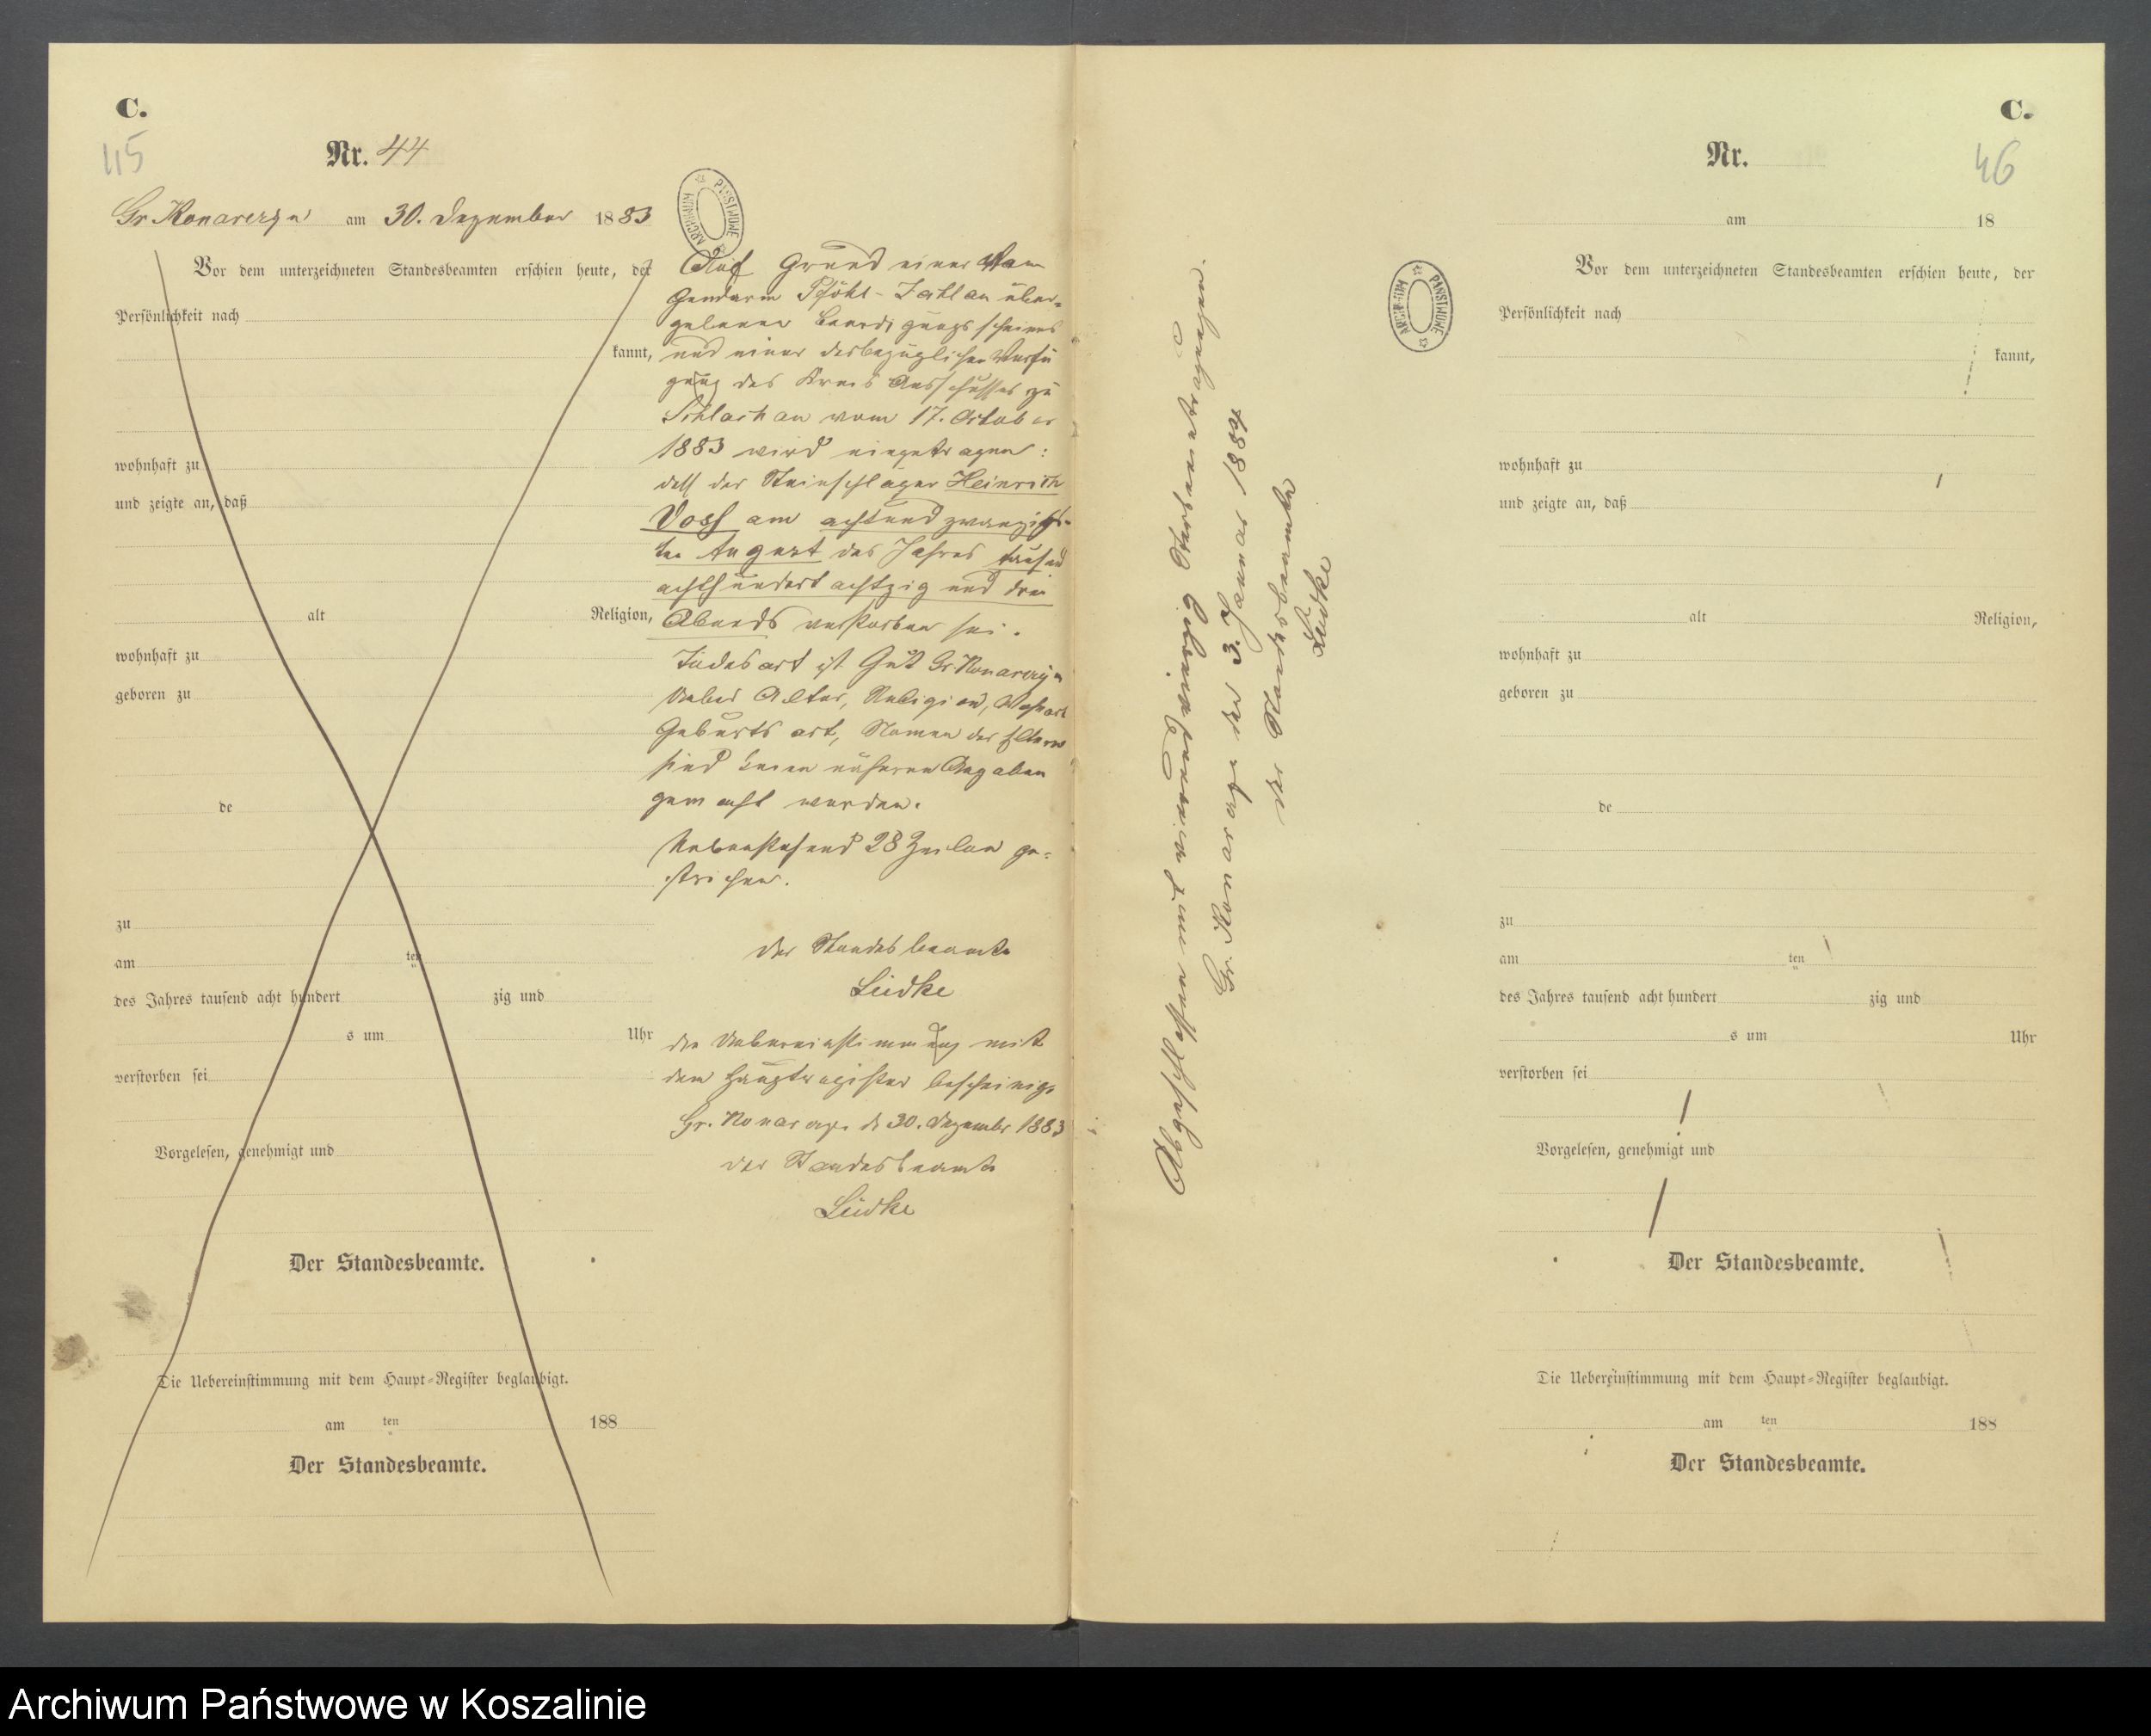 C.
45
Nr. 44
Gr. Konarczyn am 30. Dezember 1883
ARCHIWUM PAŃSTWOWE
Vor dem unterzeichneten Standesbeamten erschien heute, der
Persönlichkeit nach
kannt,
wohnhaft zu
und zeigte an, daß
alt Religion,
wohnhaft zu
geboren zu
de
zu
am ten
des Jahres tausend acht hundert zig und
s um Uhr
verstorben sei
Vorgelesen, genehmigt und
Der Standesbeamte.
Die Uebereinstimmung mit dem Haupt-Register beglaubigt.
am ten 188
Der Standesbeamte.
Auf Grund einer vom
Gendarm über-
gebenen Beerdigungsscheines
und einer desbezüglichen Verfü
gung des Kreis Ausschusses zu
Schlochau vom 17. October
1883 wird eingetragen:
daß der Steinschläger Heinrich
Voss am achtundzwanzigs-
ten August des Jahres tausend
achthundert achtzig und drei
Abends verstorben sei.
Todesort ist Gut Gr. Konarczyn
Ueber Alter, Religion, Wohnort
Geburtsort, Namen der Eltern
sind keine näheren Angaben
gemacht worden.
Nebenstehend 28 Zeilen ge-
strichen.
Der Standesbeamte
Lüdke
Die Uebereinstimmung mit
dem Hauptregister bescheinigt
Gr. Konarczyn d. 30. Dezember 1883
Der Standesbeamte
Lüdke
Abgeschlossen mit vierundvierzig Sterbeeintragungen.
Gr. Konarczyn den 3. Januar 1884
Der Standesbeamte
Lüdke
C.
Nr.
46
am 18
ARCHIWUM PAŃSTWOWE
Vor dem unterzeichneten Standesbeamten erschien heute, der
Persönlichkeit nach
kannt,
wohnhaft zu
und zeigte an, daß
alt Religion,
wohnhaft zu
geboren zu
de
zu
am ten
des Jahres tausend acht hundert zig und
s um Uhr
verstorben sei
Vorgelesen, genehmigt und
Der Standesbeamte.
Die Uebereinstimmung mit dem Haupt-Register beglaubigt.
am ten 188
Der Standesbeamte.
Archiwum Państwowe w Koszalinie